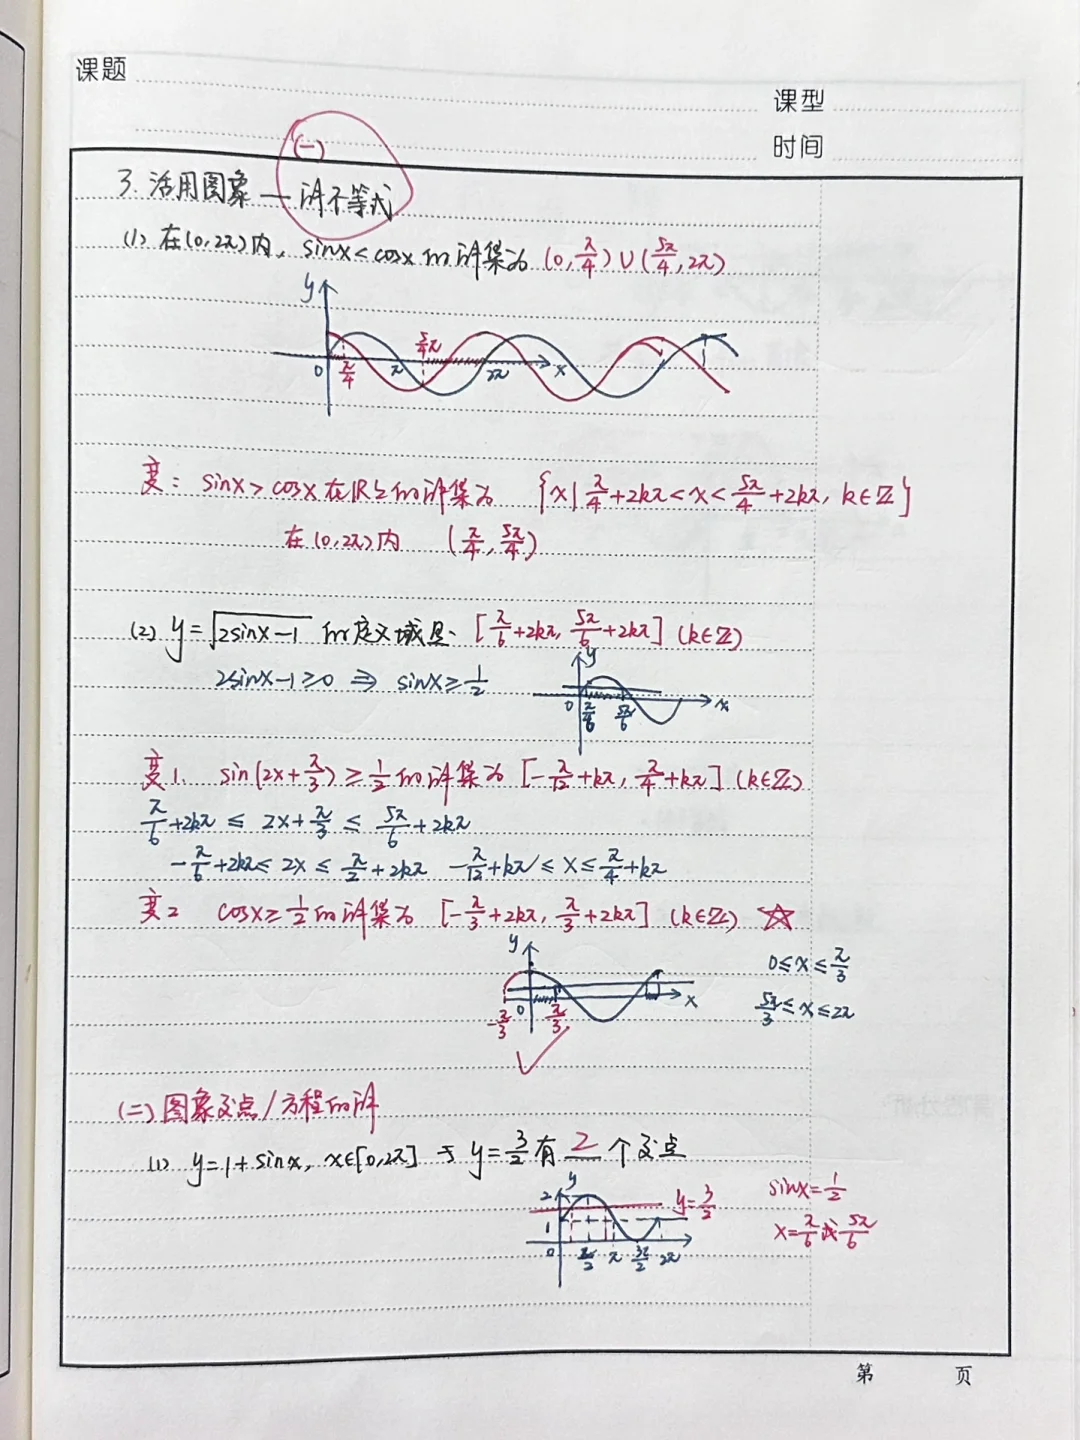 课题
课型
时间
(一)
3. 活用图象 — 解不等式
(1) 在(0,2π)内, sinx<cosx的解集为 (0, π/4)∪(5π/4, 2π)
y
0 π/4 π 5/4π 2π x
变: sinx>cosx在ℝ上的解集为 {x| π/4+2kπ<x<5π/4+2kπ, k∈ℤ}
在(0,2π)内 (π/4, 5π/4)
(2) y=√(2sinx-1) 的定义域是. [π/6+2kπ, 5π/6+2kπ] (k∈ℤ)
2sinx-1≥0 ⇒ sinx≥1/2
y
0 π/6 5π/6 x
变1. sin(2x+π/3)≥1/2的解集为 [-π/12+kπ, π/4+kπ] (k∈ℤ)
π/6+2kπ ≤ 2x+π/3 ≤ 5π/6+2kπ
-π/6+2kπ≤ 2x ≤ π/2+2kπ -π/12+kπ ≤ x ≤ π/4+kπ
变2 cosx≥1/2的解集为 [-π/3+2kπ, π/3+2kπ] (k∈ℤ) ☆
y
0≤x≤π/3
-π/3 0 π/3 x
5π/3≤x≤2π
(二) 图象交点/方程的解
(1) y=1+sinx, x∈[0,2π] 与 y=3/2有 2 个交点
y
2 y=3/2
sinx=1/2
1
x=π/6或5π/6
0 π/2 π 3π/2 2π
第 页